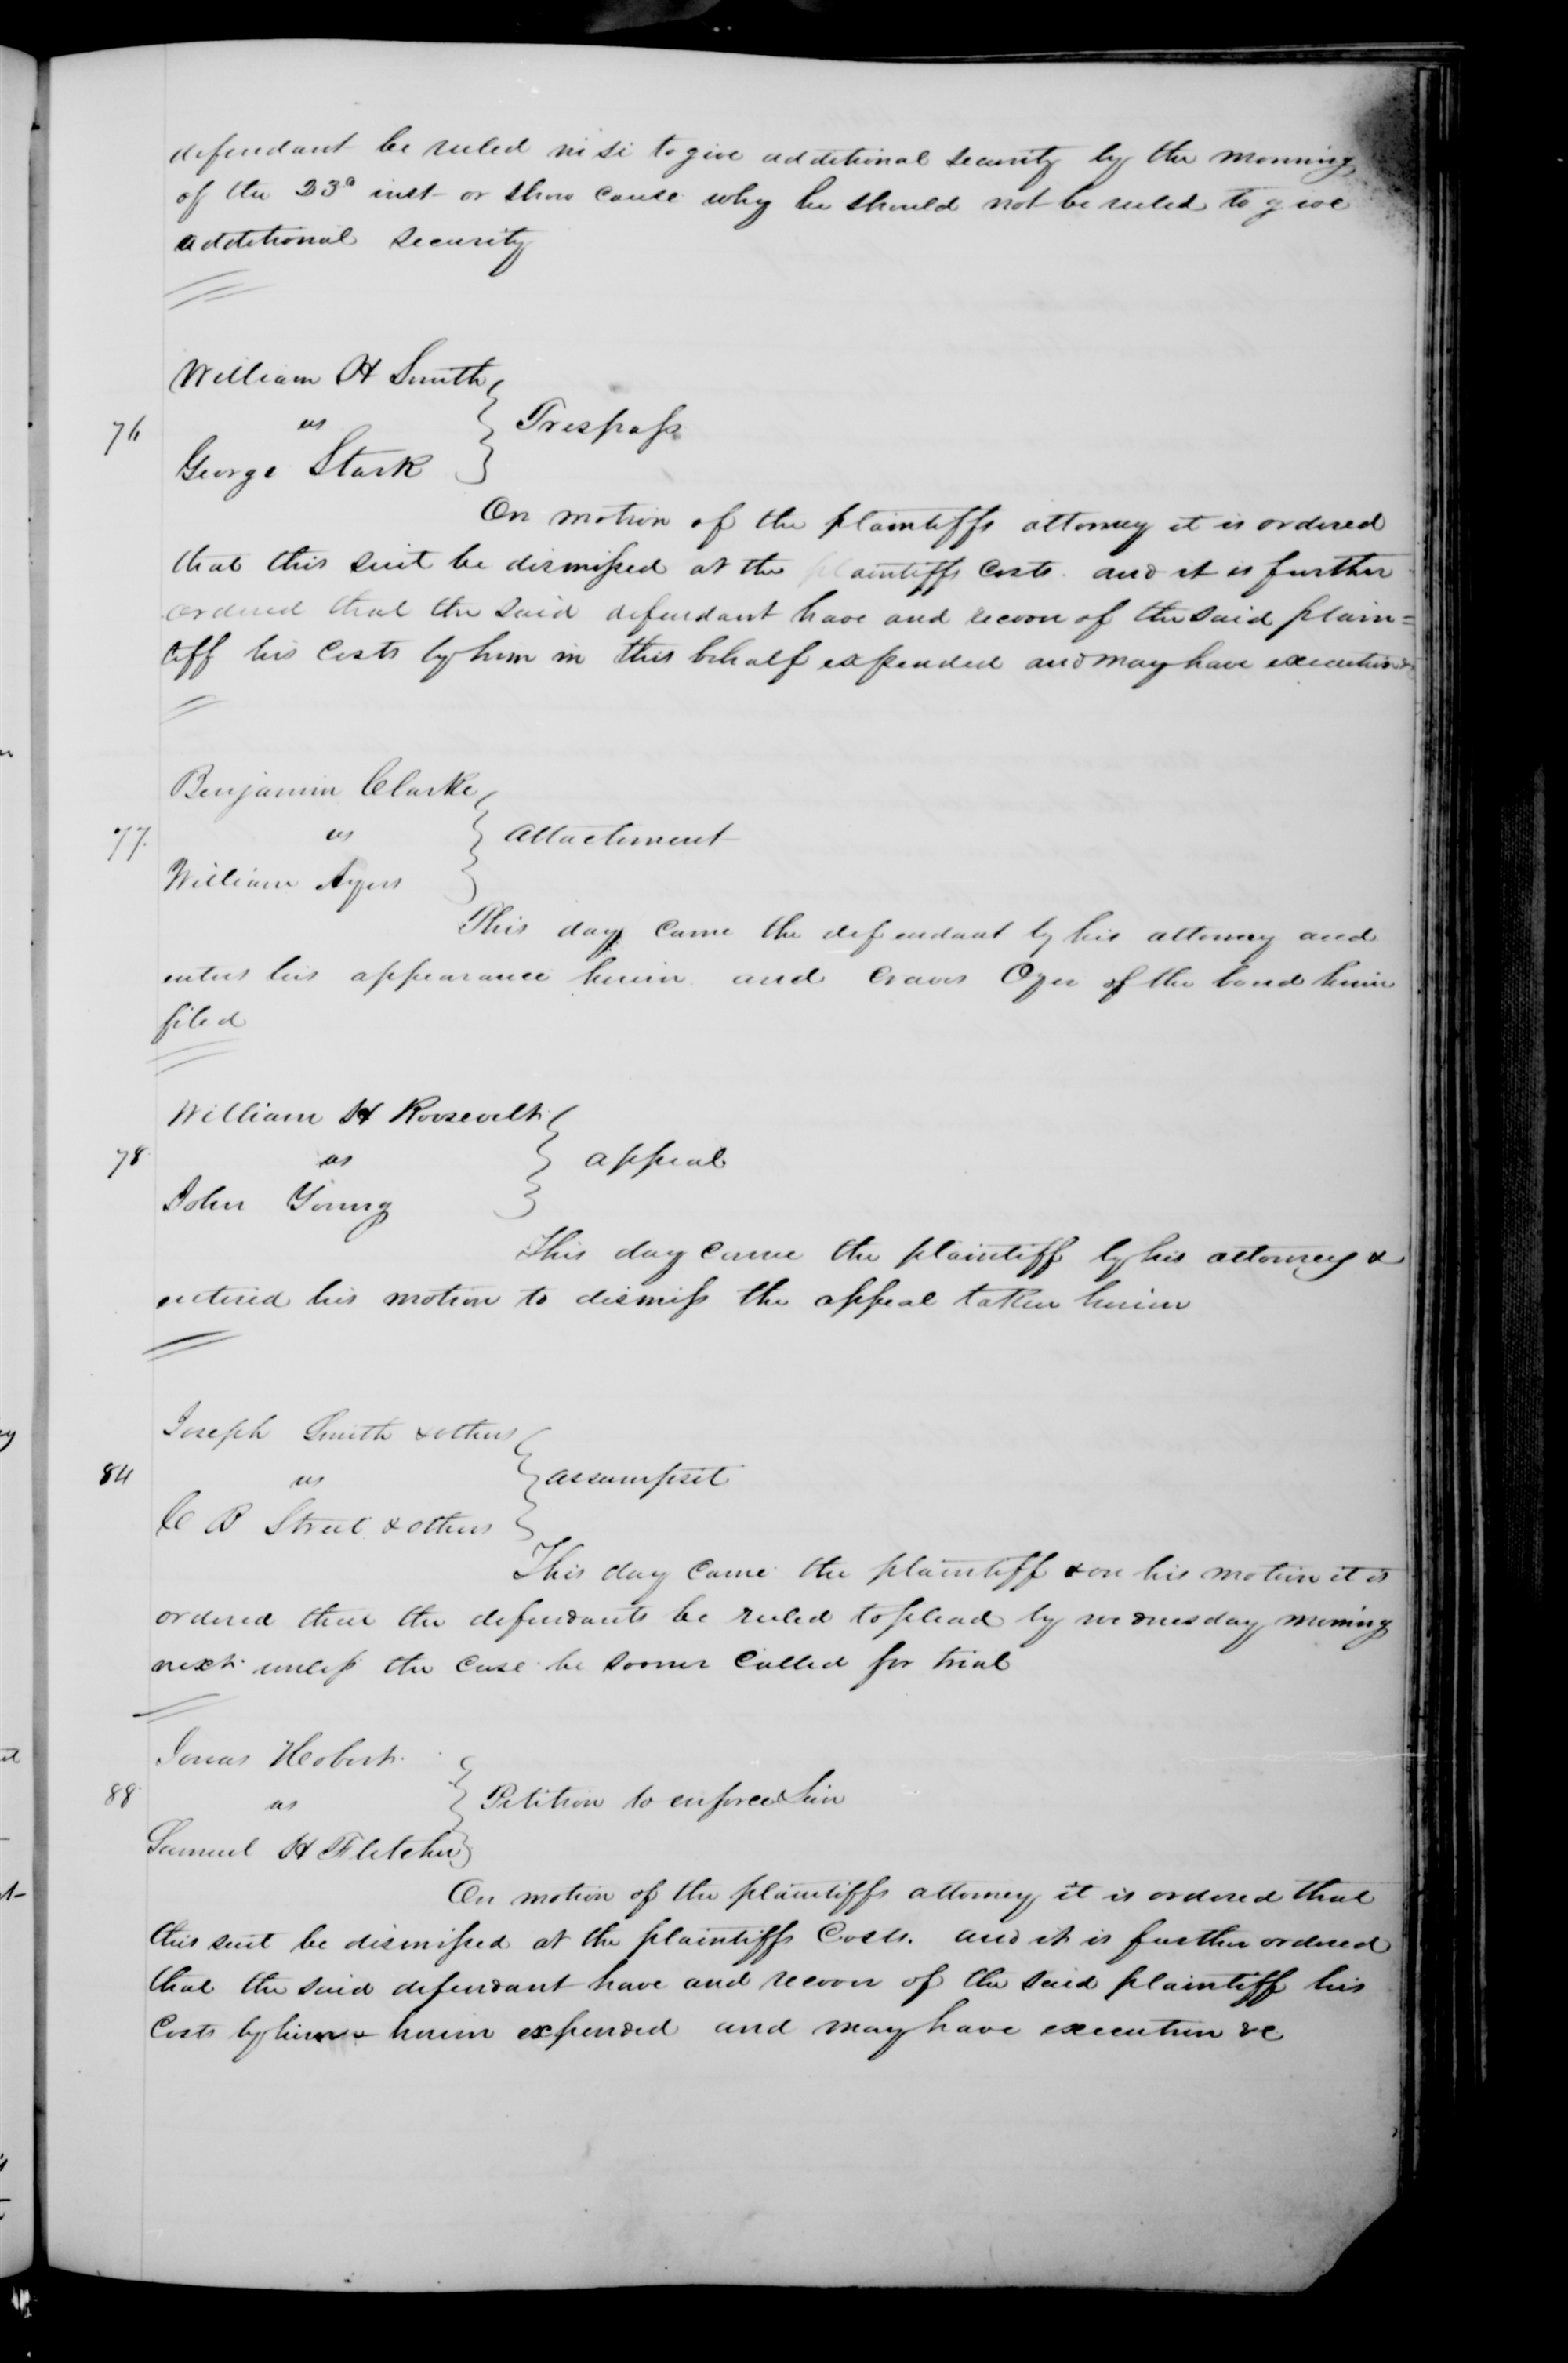 defendant be ruled nisi to give additional security by the morning
of the 23d inst or show cause why he should not be ruled to give
additional security
William H Smith
76 vs } Trespass
George Stark
On motion of the plaintiffs attorney it is ordered
that this suit be dismissed at the plaintiffs costs. and it is further
ordered that the said defendant have and recover of the said plain=
tiff his costs by him in this behalf expended and may have execution &
Benjamin Clarke
77. vs } Attachment
William Ayers
This day came the defendant by his attorney and
enters his appearance herein and craves Oyer of the bond herein
filed
William H Roosevelt
78 vs } appeal
John Young
This day came the plaintiff by his attorney &
entered his motion to dismiss the appeal taken herein
Joseph Smith & others
84 vs } assumpsit
C B Street & others
This day came the plaintiff & on his motion it is
ordered that the defendants be ruled to plead by wednesday morning
next unless the case be sooner called for trial
Jonas Hobert
88 vs } Petition to enforce Lien
Samuel H Fletcher
On motion of the plaintiffs attorney it is ordered that
this suit be dismissed at the plaintiffs Costs. and it is further ordered
that the said defendant have and recover of the said plaintiff his
Costs by him herein expended and may have execution &c